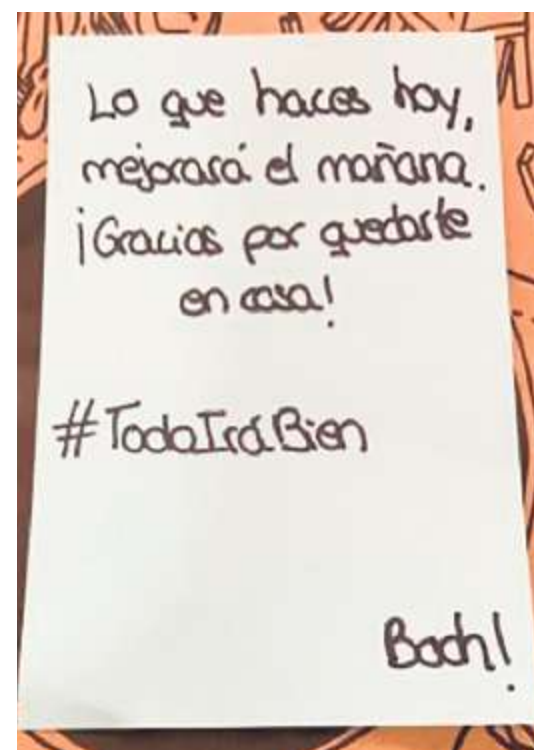 Lo que haces hoy,
mejorará el mañana.
¡Gracias por quedarte
en casa!
#TodoIráBien
Bach!